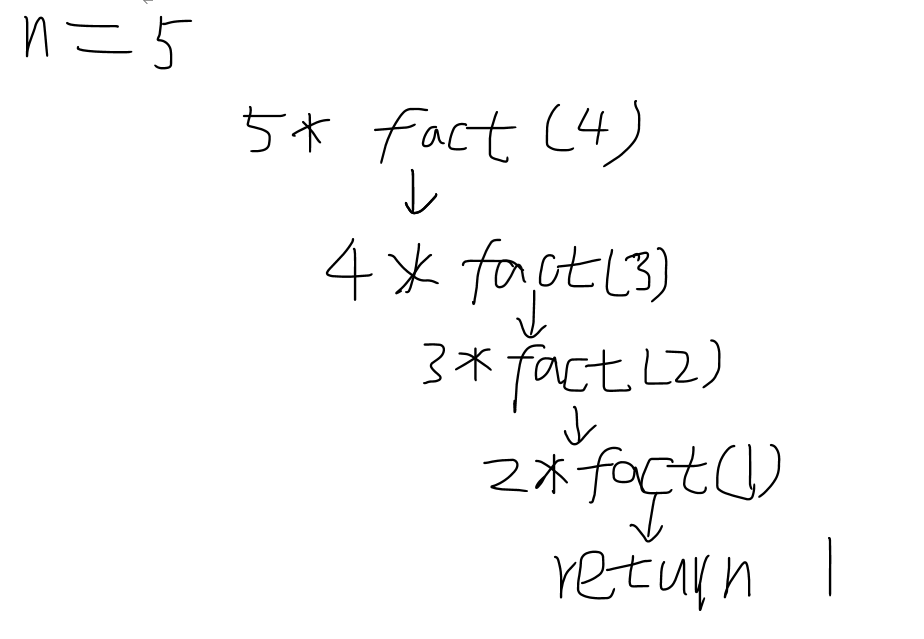 n = 5
5 * fact (4)
4 * fact(3)
3 * fact(2)
2 * fact(1)
return 1